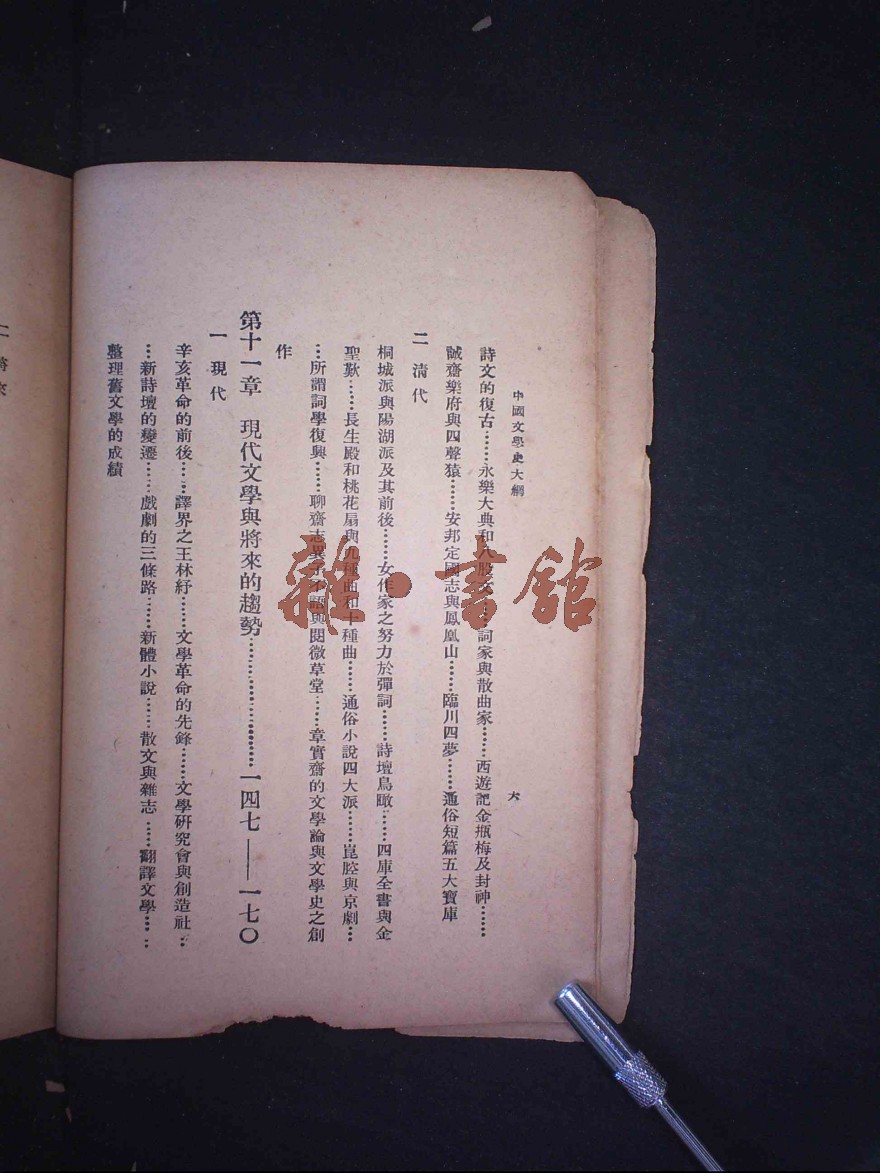 中國文學史大綱
六
詩文的復古……永樂大典和八股文……詞家與散曲家……西遊記金瓶梅及封神……
誠齋樂府與四聲猿……安邦定國志與鳳凰山……臨川四夢……通俗短篇五大寶庫
二 清代
桐城派與陽湖派及其前後……女作家之努力於彈詞……詩壇鳥瞰……四庫全書與金
聖歎……長生殿和桃花扇與九種曲和十種曲……通俗小說四大派……崑腔與京劇…
…所謂詞學復興……聊齋志異子不語與閱微草堂……章實齋的文學論與文學史之創
作
第十一章 現代文學與將來的趨勢……一四七——一七〇
一 現代
辛亥革命的前後……譯界之王林紓……文學革命的先鋒……文學研究會與創造社…
…新詩壇的變遷……戲劇的三條路……新體小說……散文與雜志……翻譯文學……
整理舊文學的成績
雜·書館